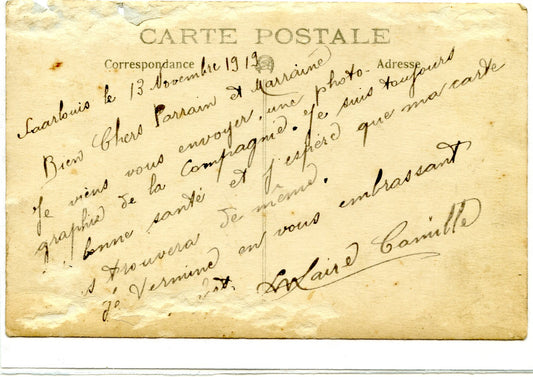 CARTE POSTALE
Correspondance Adresse
Saarlouis le 13 Novembre 1919
Bien Chers Parrain et Marraine
Je viens vous envoyer, une photo-
graphie de la Compagnie. Je suis toujours
bonne santé et J'espère que ma carte
s trouvera de même.
Je Vermine en vous embrassant
Camille